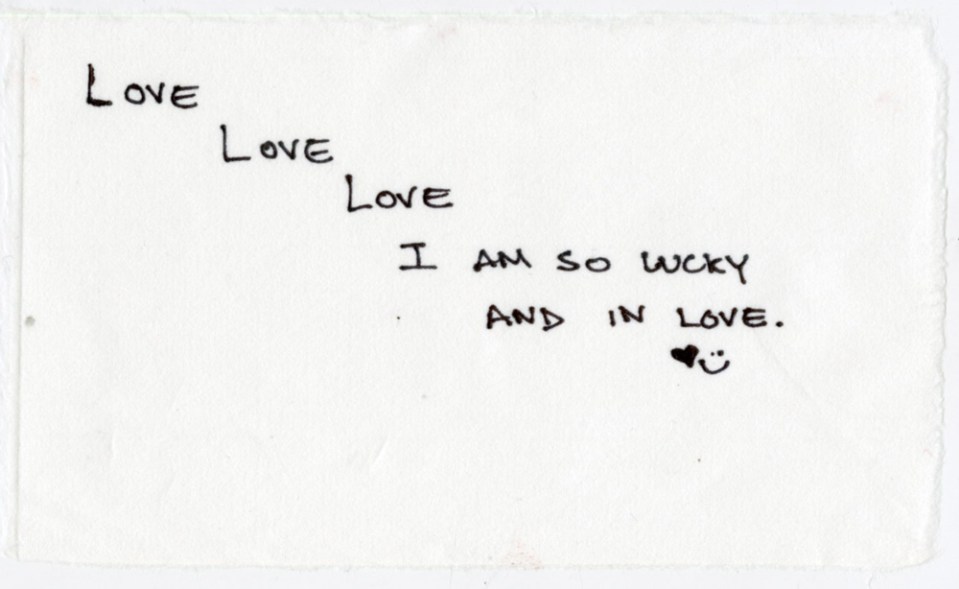 LOVE
LOVE
LOVE
I AM SO LUCKY
AND IN LOVE.